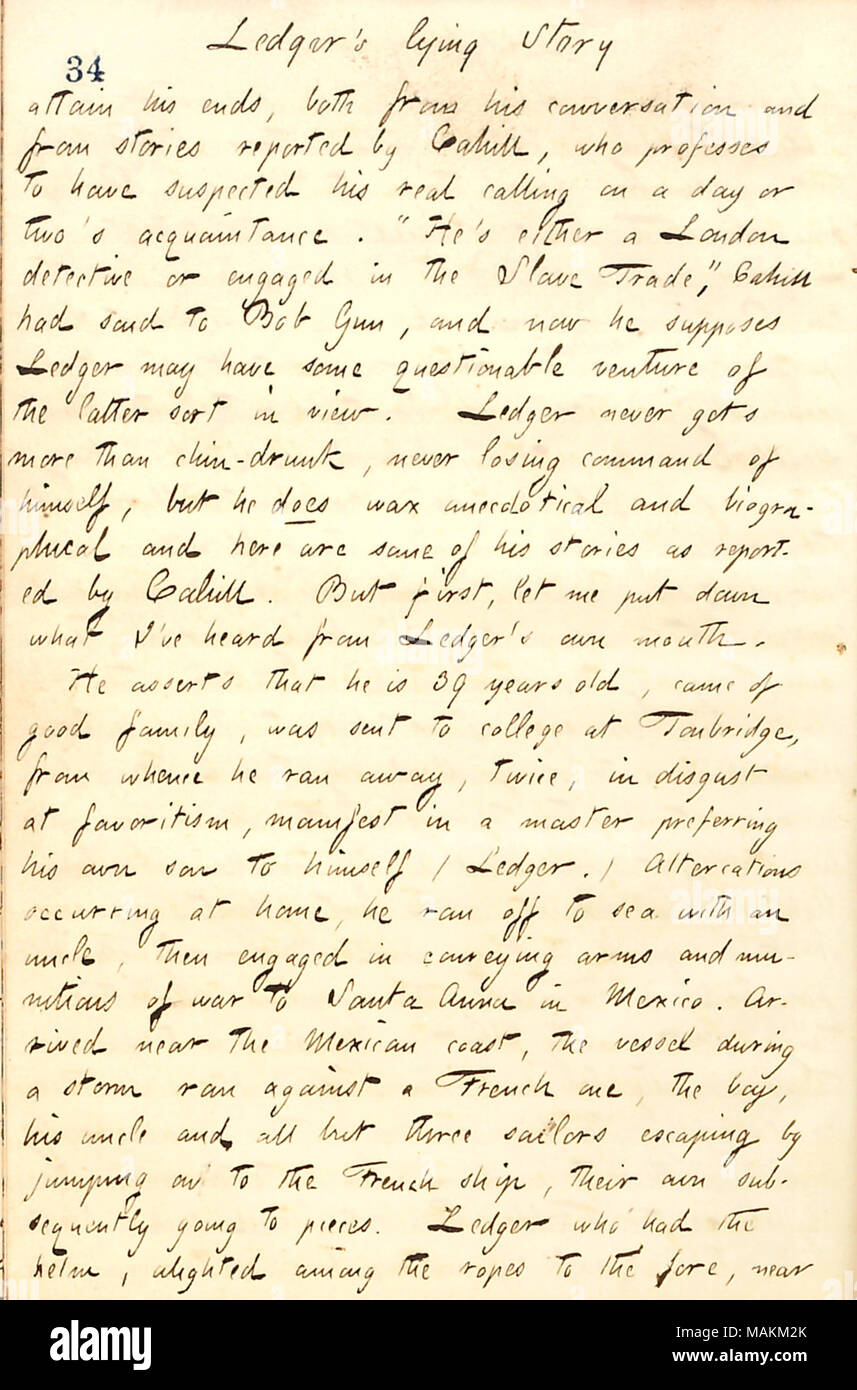 Ledger's lying Story
34
attain his ends, both from his conversation and
from stories reported by Cahill, who professes
to have suspected his real calling on a day or
two's acquaintance. "He's either a London
detective or engaged in the Slave Trade," Cahill
had said to Bob Gun, and now he supposes
Ledger may have some questionable venture of
the latter sort in view. Ledger never gets
more than chin-drunk, never losing command of
himself, but he does wax anecdotical and biogra-
phical and here are some of his stories as report-
ed by Cahill. But first, let me put down
what I've heard from Ledger's own mouth.
He asserts that he is 39 years old, came of
good family, was sent to college at Tonbridge,
from whence he ran away, twice, in disgust
at favoritism, manifest in a master preferring
his own son to himself (Ledger.) Altercations
occurring at home, he ran off to sea with an
uncle, then engaged in conveying arms and mu-
nitions of war to Santa Anna in Mexico. Ar-
rived near the Mexican coast, the vessel during
a storm ran against a French one, the boy,
his uncle and all but three sailors escaping by
jumping on to the French ship, their own sub-
sequently going to pieces. Ledger who had the
helm, alighted among the ropes to the fore, near
alamy
Image ID: MAKM2K
www.alamy.com